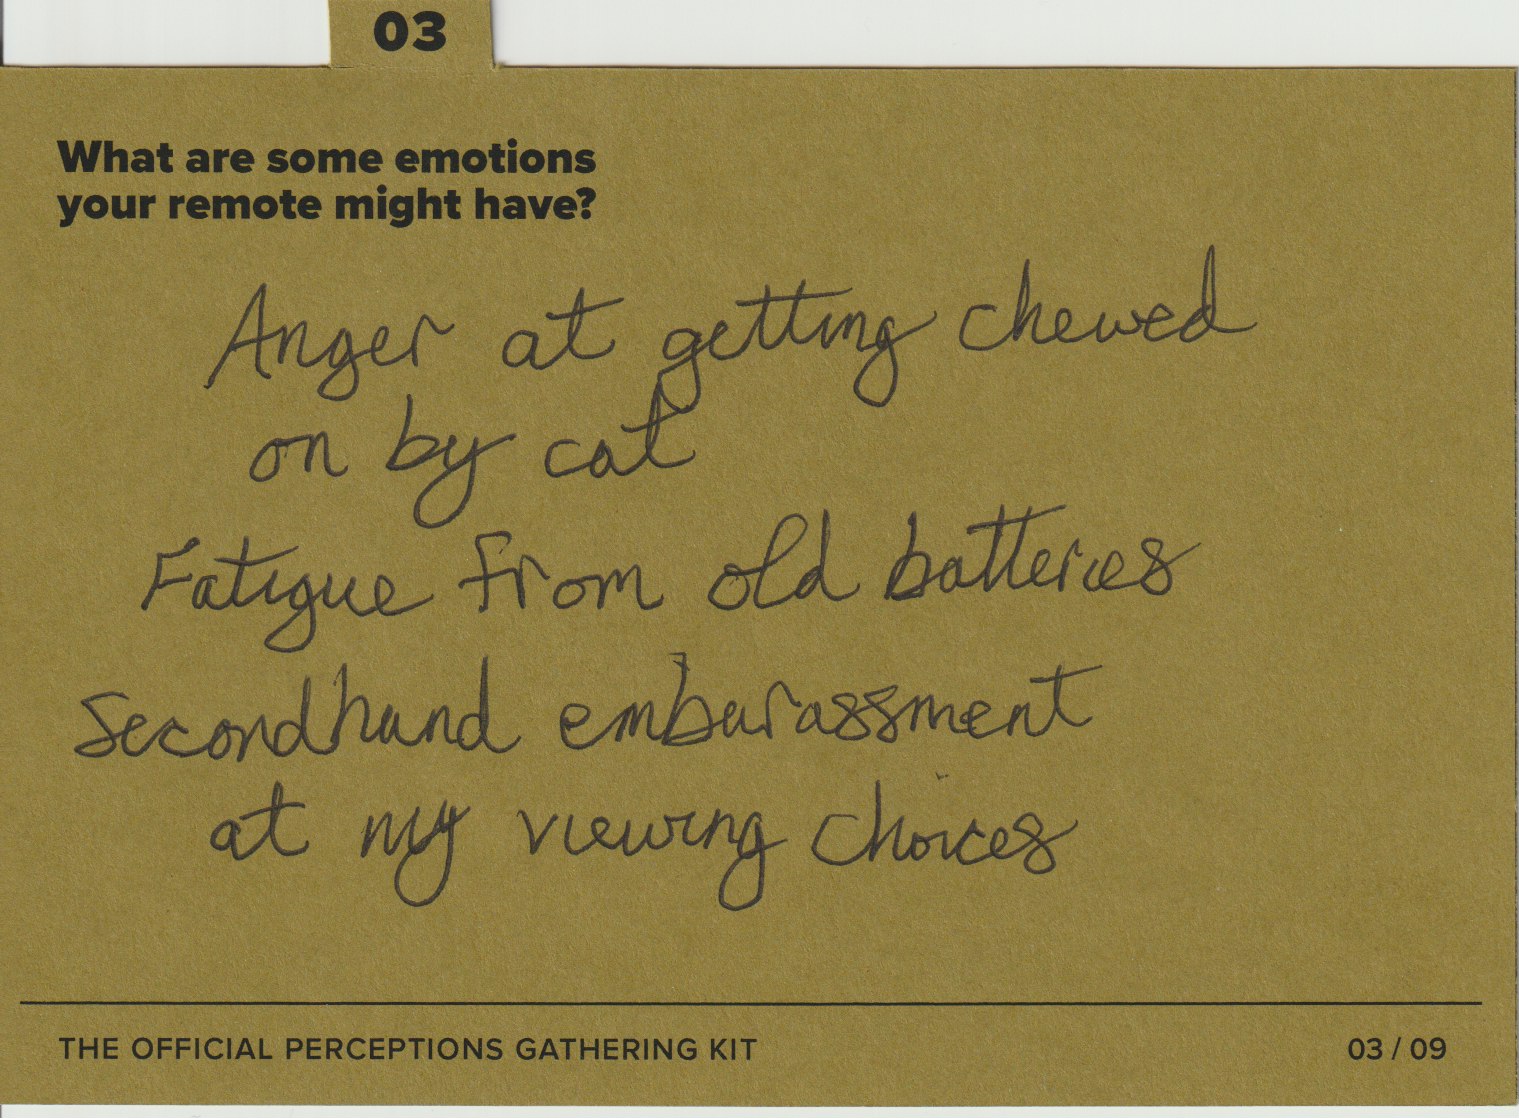 03
What are some emotions
your remote might have?
Anger at getting chewed
on by cat
Fatigue from old batteries
Secondhand embarassment
at my viewing choices
THE OFFICIAL PERCEPTIONS GATHERING KIT
03 / 09